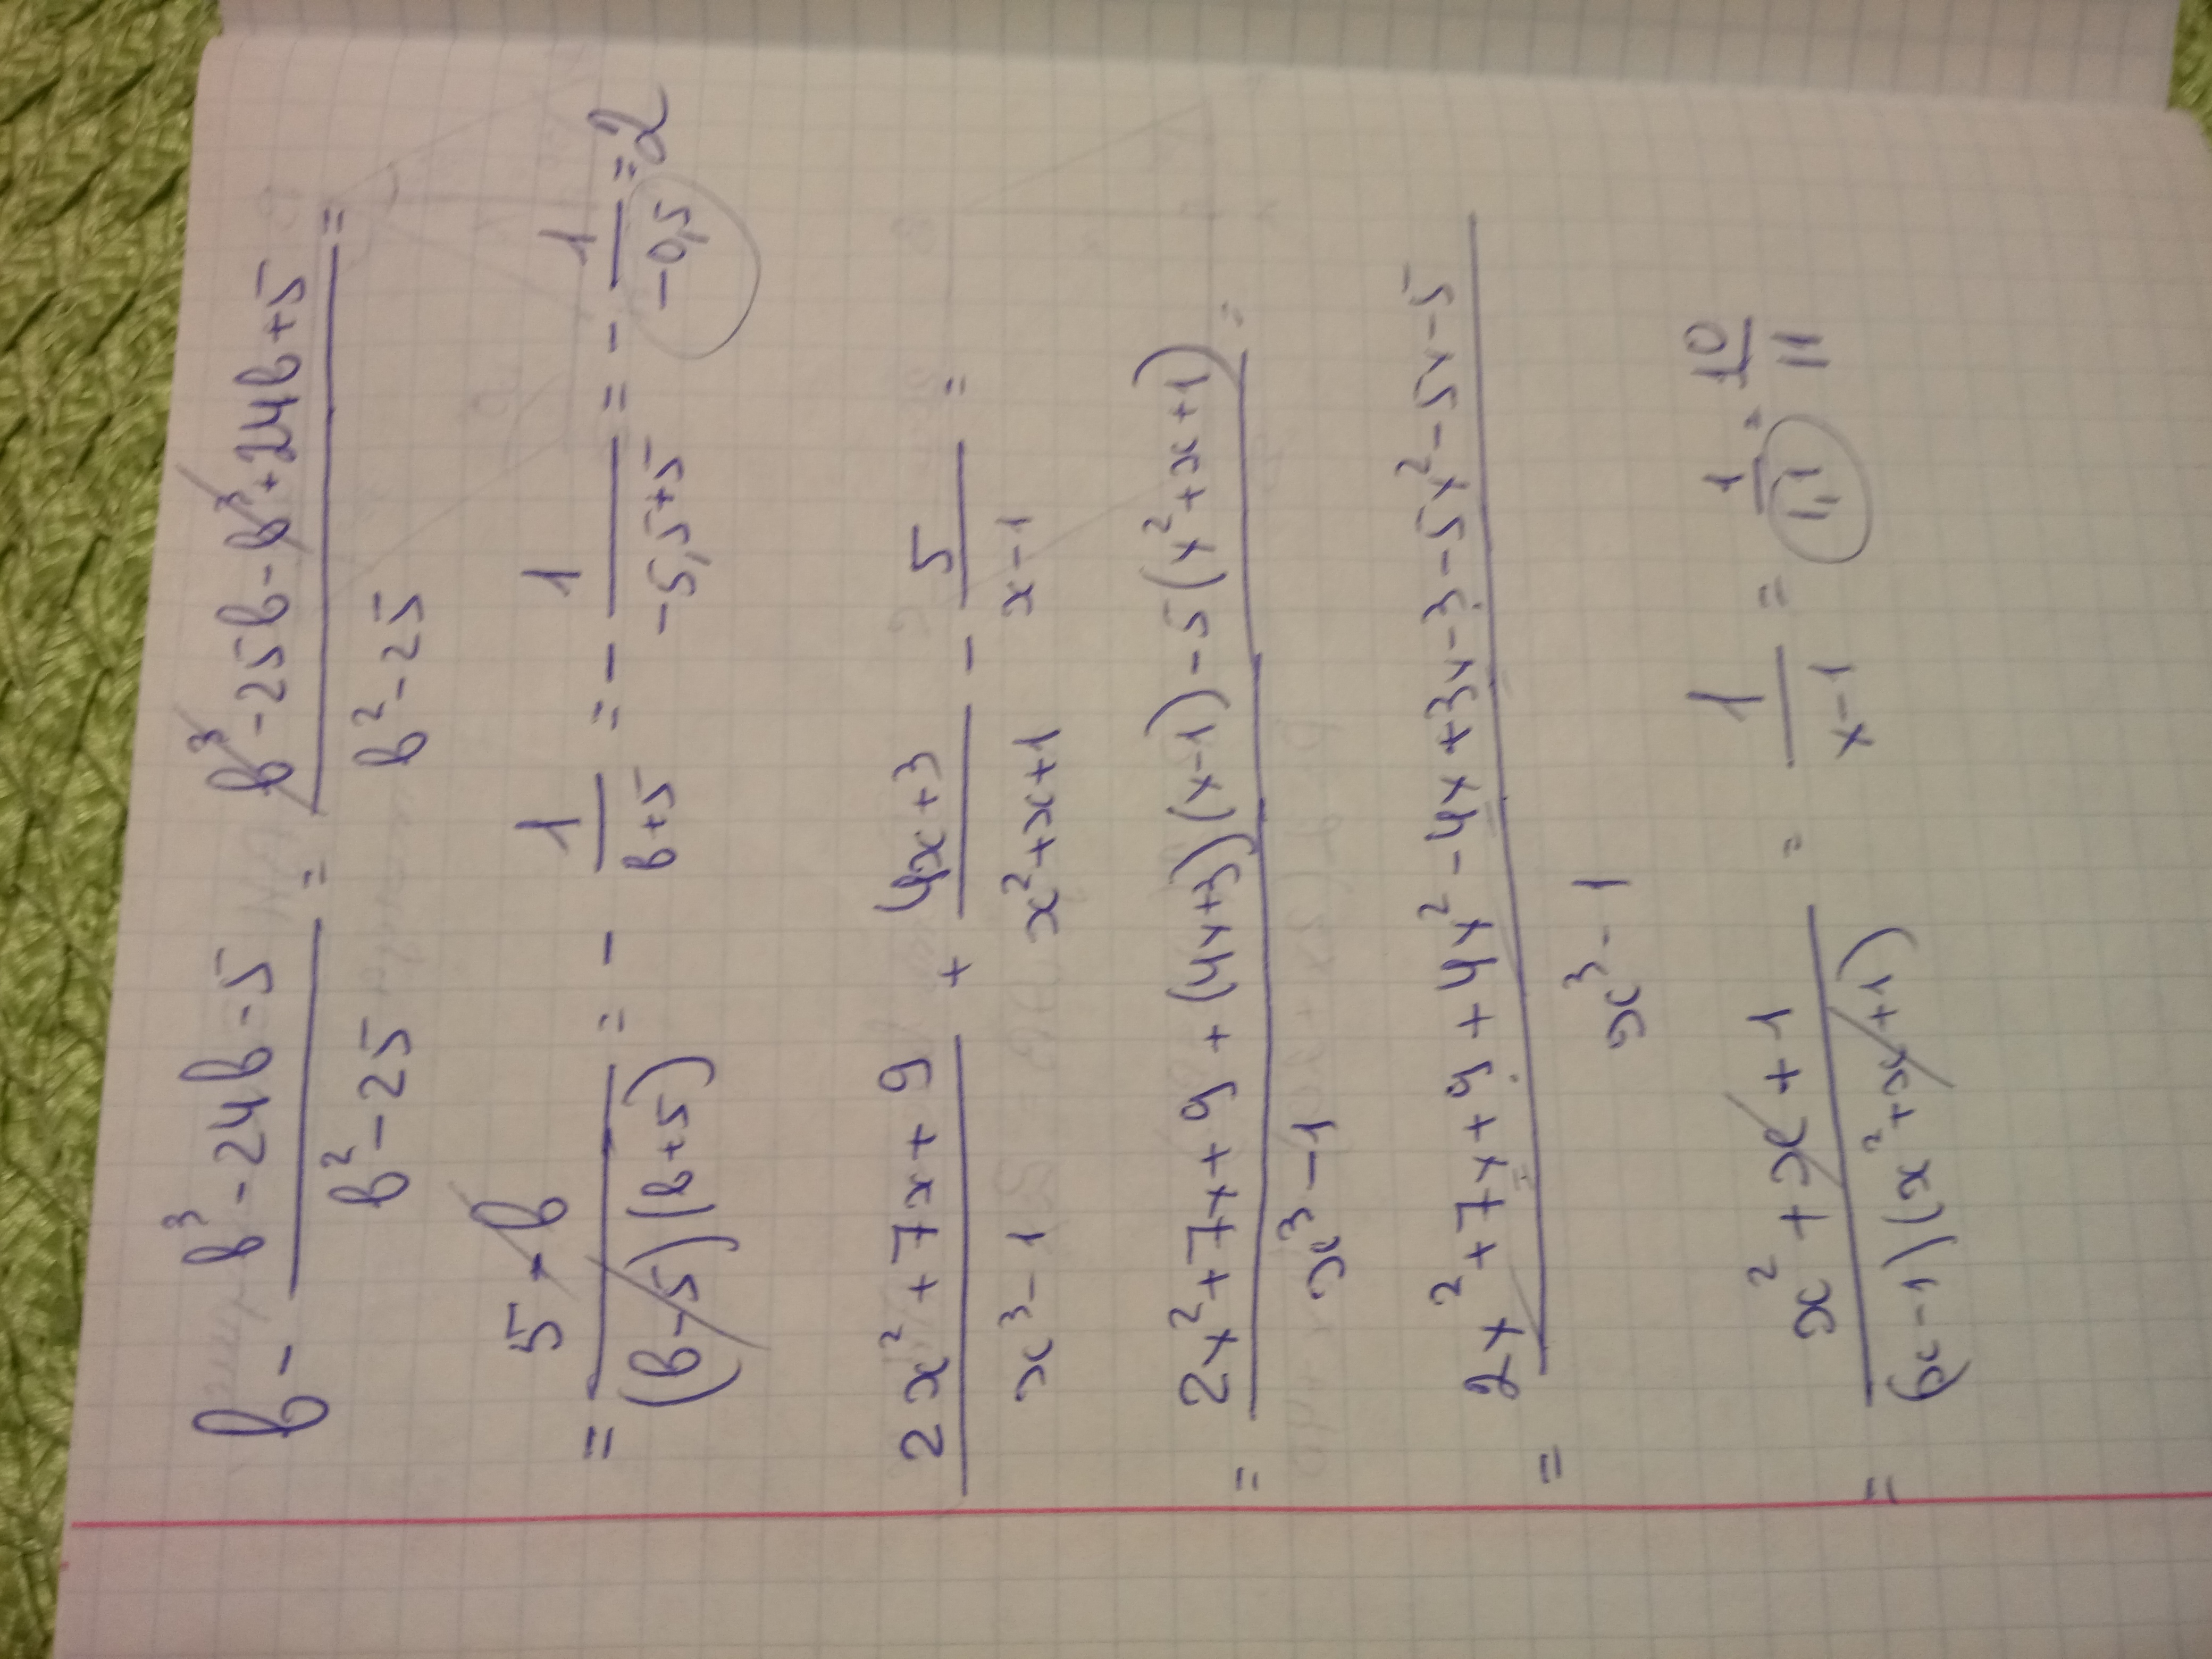 b - (b³ - 24b - 5)/(b² - 25) = (b³ - 25b - b³ + 24b + 5)/(b² - 25) =
= (5 - b)/((b - 5)(b + 5)) = - 1/(b + 5) = - 1/(-5,5 + 5) = - 1/(-0,5) = 2
(2x² + 7x + 9)/(x³ - 1) + (4x + 3)/(x² + x + 1) - 5/(x - 1) =
= (2x² + 7x + 9 + (4x + 3)(x - 1) - 5(x² + x + 1))/(x³ - 1) =
= (2x² + 7x + 9 + 4x² - 4x + 3x - 3 - 5x² - 5x - 5)/(x³ - 1)
= (x² + x + 1)/((x - 1)(x² + x + 1)) = 1/(x - 1) = 1/1,1 = 10/11